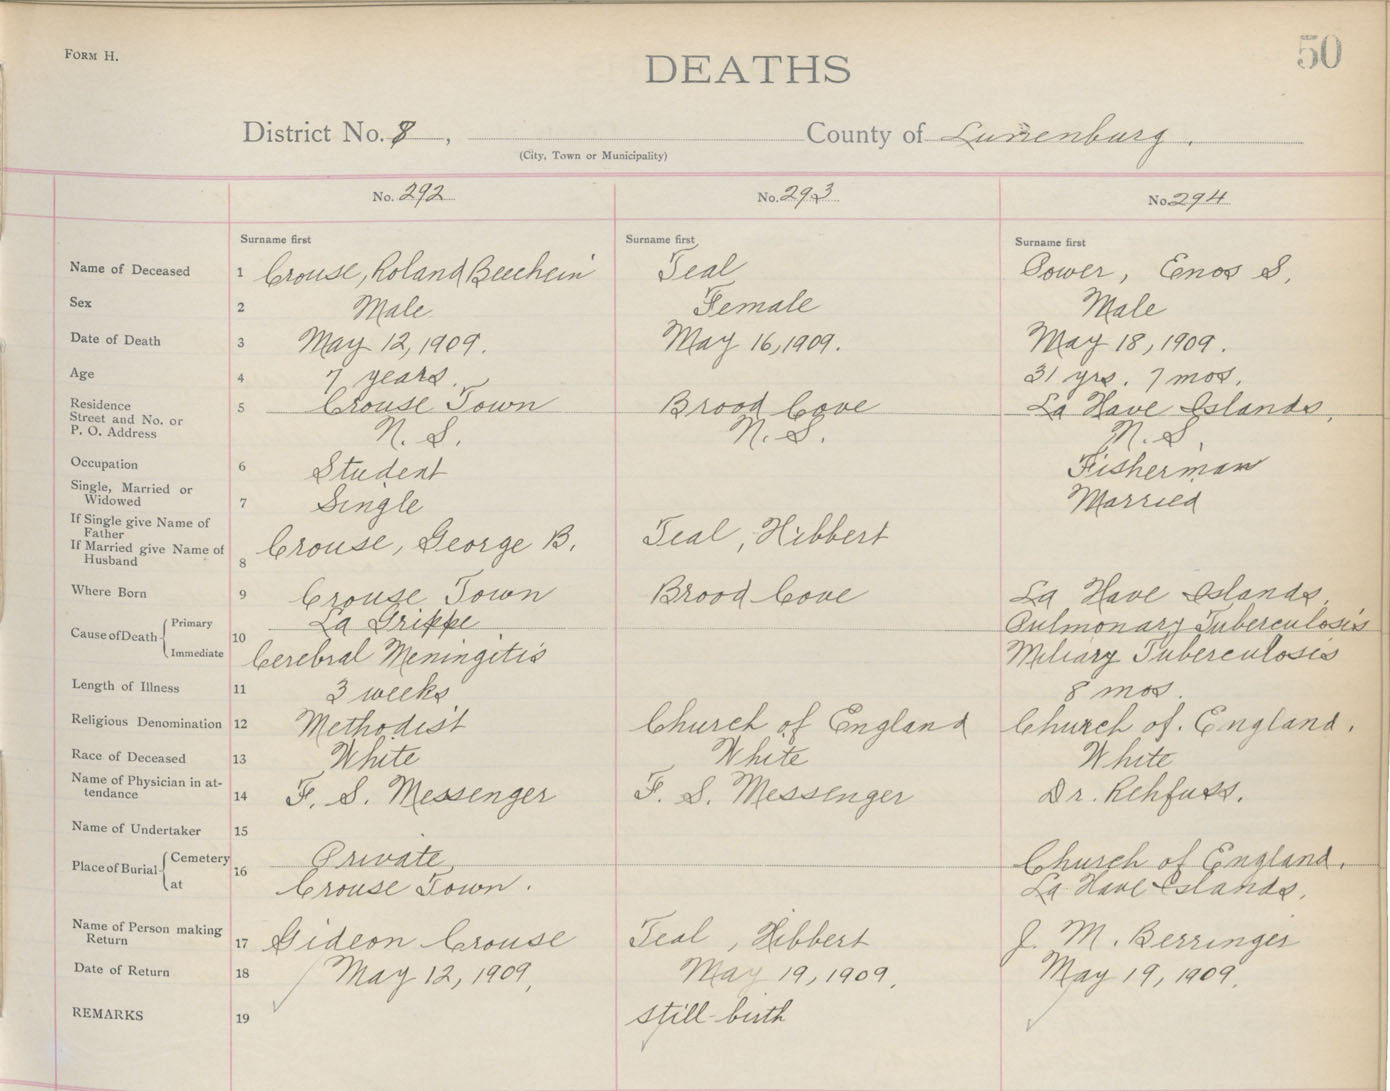 FORM H.
50
DEATHS
District No. 8, County of Lunenburg.
(City, Town or Municipality)
No. 292 No. 293 No. 294
Surname first Surname first Surname first
Name of Deceased 1 Crouse, Roland Beechein Teal Power, Enos S.
Sex 2 Male Female Male
Date of Death 3 May 12, 1909. May 16, 1909. May 18, 1909.
Age 4 7 years. 31 yrs. 7 mos.
Residence 5 Crouse Town Brood Cove La Have Islands,
Street and No. or
P. O. Address N. S. N. S. N. S.
Occupation 6 Student Fisherman
Single, Married or
Widowed 7 Single Married
If Single give Name of
Father
If Married give Name of
Husband 8 Crouse, George B. Teal, Hibbert
Where Born 9 Crouse Town Brood Cove La Have Islands,
Cause of Death 10 Primary La Grippe Pulmonary Tuberculosis
Immediate Cerebral Meningitis Miliary Tuberculosis
Length of Illness 11 3 weeks 8 mos.
Religious Denomination 12 Methodist Church of England Church of. England.
Race of Deceased 13 White White White
Name of Physician in at-
tendance 14 F. S. Messenger F. S. Messenger Dr. Rehfuss.
Name of Undertaker 15
Place of Burial 16 Cemetery Private, Church of England.
at Crouse Town. La Have Islands.
Name of Person making
Return 17 Gideon Crouse Teal, Hibbert J. M. Berringer
Date of Return 18 May 12, 1909, May 19, 1909. May 19, 1909.
REMARKS 19 still-birth